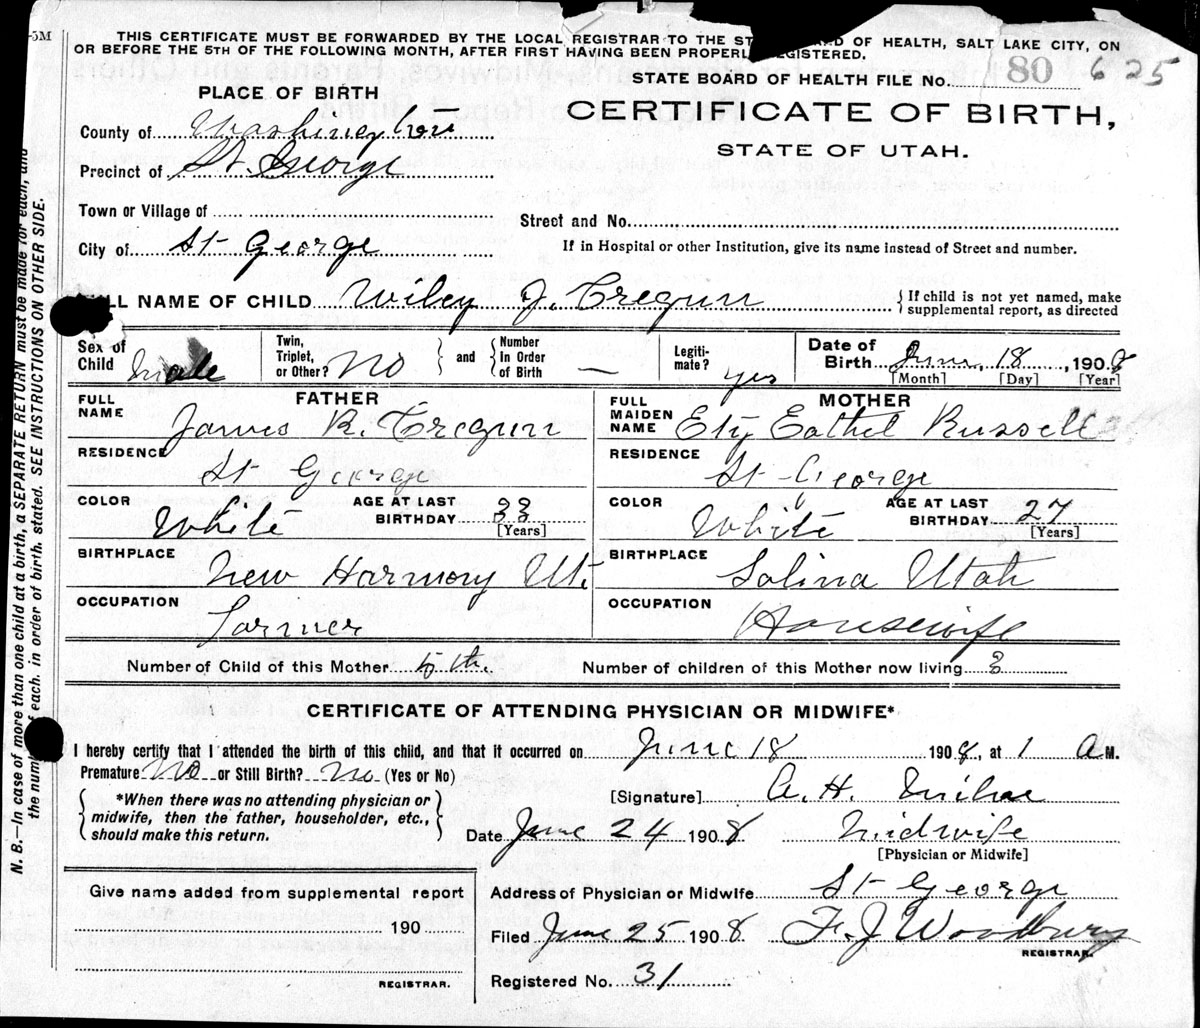 -5M
THIS CERTIFICATE MUST BE FORWARDED BY THE LOCAL REGISTRAR TO THE ST RD OF HEALTH, SALT LAKE CITY, ON
OR BEFORE THE 5TH OF THE FOLLOWING MONTH, AFTER FIRST HAVING BEEN PROPERL EGISTERED.
STATE BOARD OF HEALTH FILE No. 80 625
PLACE OF BIRTH
CERTIFICATE OF BIRTH,
STATE OF UTAH.
County of Washington
Precinct of St. George
Town or Village of
Street and No.
City of St George
If in Hospital or other Institution, give its name instead of Street and number.
LL NAME OF CHILD Wiley J. Gregun
If child is not yet named, make
supplemental report, as directed
Sex of Child Male
Twin, Triplet, or Other? No
and
Number In Order of Birth —
Legiti- mate? yes
Date of Birth June, 18, 1908
[Month] [Day] [Year]
FATHER
MOTHER
FULL NAME James R. Gregun
FULL MAIDEN NAME Ety Eathel Russell
RESIDENCE St George
RESIDENCE St George
COLOR White
AGE AT LAST BIRTHDAY 33 [Years]
COLOR White
AGE AT LAST BIRTHDAY 27 [Years]
BIRTHPLACE New Harmony Ut.
BIRTHPLACE Salina Utah
OCCUPATION Farmer
OCCUPATION Housewife
Number of Child of this Mother 5th
Number of children of this Mother now living 3
CERTIFICATE OF ATTENDING PHYSICIAN OR MIDWIFE*
I hereby certify that I attended the birth of this child, and that it occurred on June 18 1908, at 1 A M.
Premature No or Still Birth? No (Yes or No)
*When there was no attending physician or
midwife, then the father, householder, etc.,
should make this return.
[Signature] A. H.
Date June 24 1908 Midwife
[Physician or Midwife]
Give name added from supplemental report
190
REGISTRAR.
Address of Physician or Midwife St George
Filed June 25 1908 F. J Woodbury
REGISTRAR.
Registered No. 31
N. B.—In case of more than one child at a birth, a SEPARATE RETURN must be made for each, and
the number of each, in order of birth, stated. SEE INSTRUCTIONS ON OTHER SIDE.